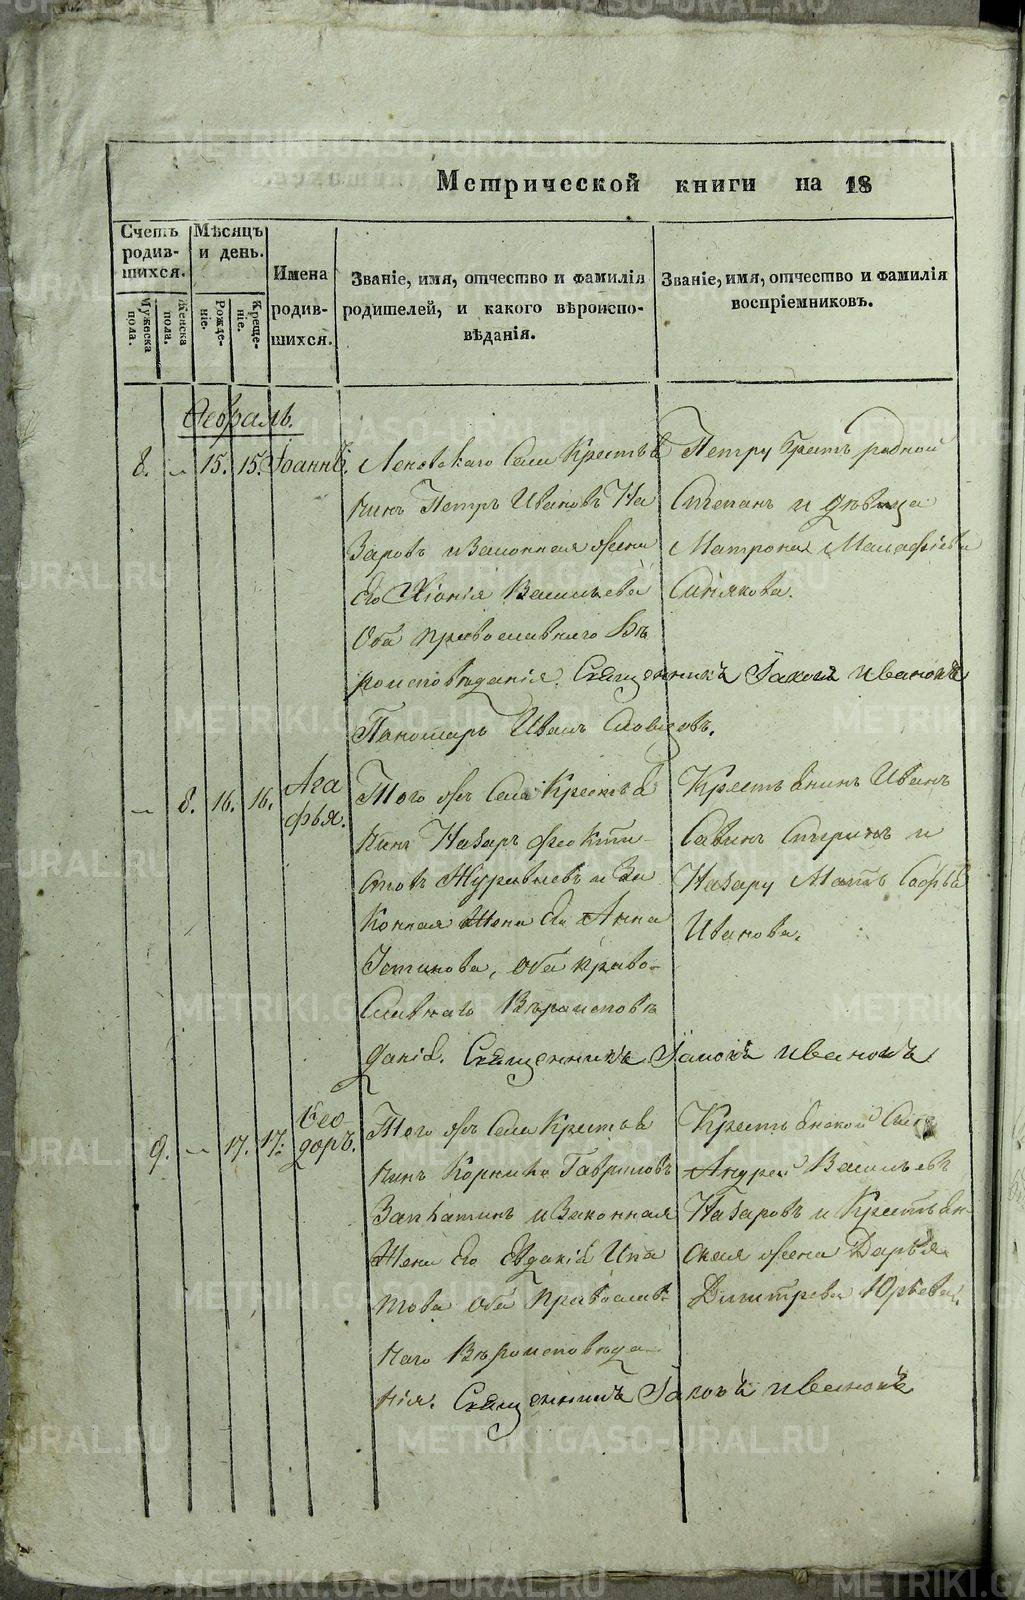 Метрической книги на 18
Счетъ родив-шихся.
Мужеска пола.
Женска пола.
Мѣсяцъ и день.
Рожде-ніе.
Креще-ніе.
Имена родив-шихся.
Званіе, имя, отчество и фамилія
родителей, и какого вѣроиспо-
вѣданія.
Званіе, имя, отчество и фамилія
воспріемниковъ.
Февраль.
8. — 15. 15. Іоаннъ.
Села Крестья
нинъ Петръ Ивановъ На
заровъ и Законная жена
его Хіонія Васильева
Оба православнаго вѣ
роисповѣданія. Священникъ Іаковъ Ивановъ
Пономарь Иванъ
Петру братъ родной
Степанъ и дѣвица
Матрона
— 8. 16. 16. Ага
фья.
Того жъ Села Крестья
нинъ Назаръ Феокти
стовъ Журавлевъ и За
конная Жена его Анна
Устинова, оба право-
славнаго Вѣроисповѣ
данія. Священникъ Іаковъ Ивановъ
Крестьянинъ Иванъ
Савинъ и
Назару Мать Софья
Иванова.
9. — 17. 17. Фео
доръ.
Того жъ Села Крестья
нинъ Корнило Гавриловъ
Запкатинъ и Законная
Жена его Евдокія Ипа
това оба Православ-
наго Вѣроисповѣда-
нія. Священникъ Іаковъ Ивановъ
Крестьянской Сынъ
Андрей Васильевъ
Назаровъ и Крестьян
ская жена Дарья
Димитрева Юрьева.
METRIKI.GASO-URAL.RU